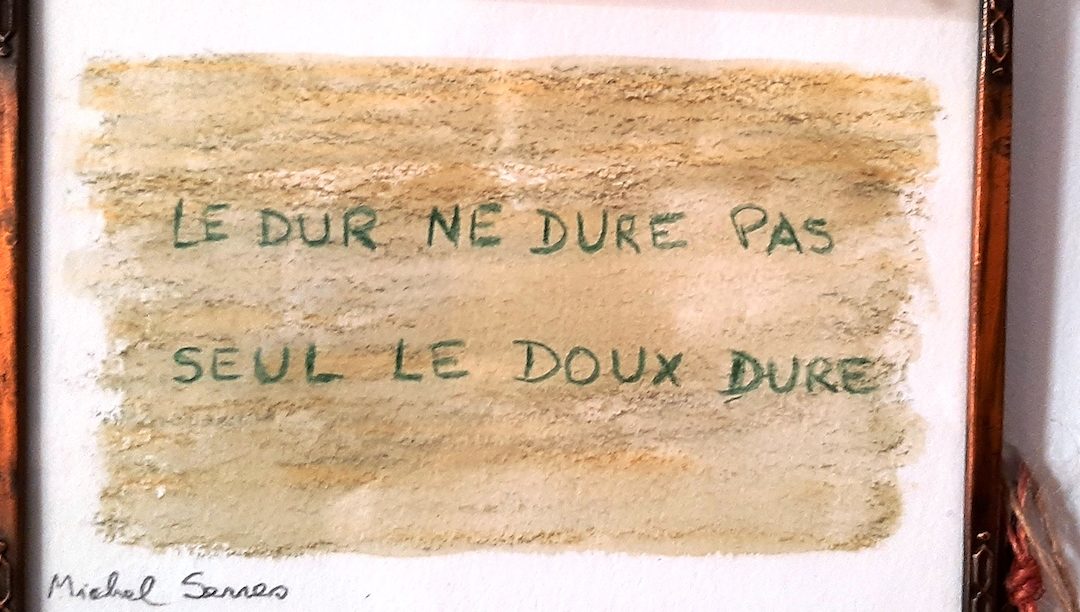 LE DUR NE DURE PAS
SEUL LE DOUX DURE
Michel Serres